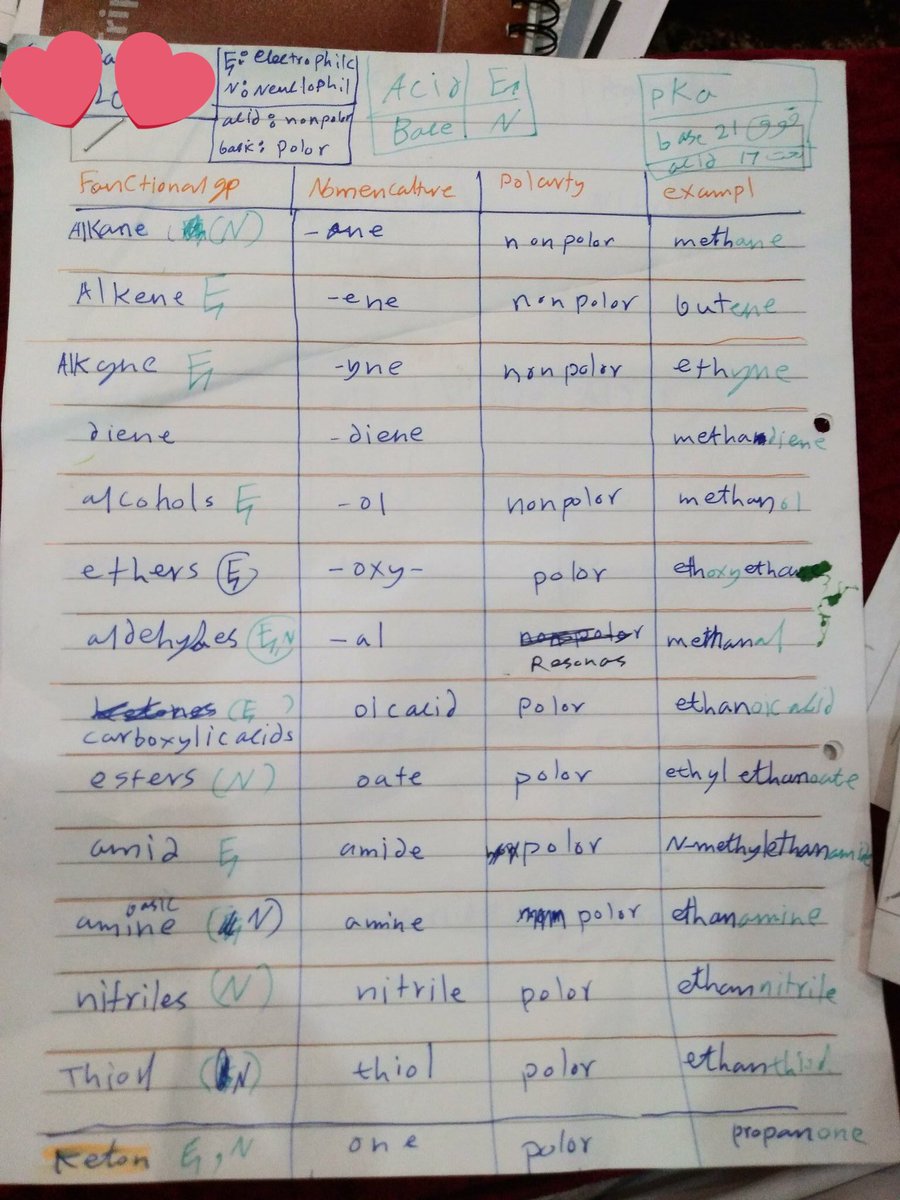 E: electrophilc
N: Neuclophil
acid: nonpolor
basic: polor
Acid E
Base N
pKa
base 21 فوق
acid 17 تحت
Functional gp Nomenculture Polarty exampl
Alkane (N) -ane nonpolor methane
Alkene E -ene nonpolor butene
Alkyne E -yne nonpolor ethyne
diene -diene methandiene
alcohols E -ol nonpolor methanol
ethers E -oxy- polor ethoxyethan
aldehydes E,N -al Resonas methanal
carboxylic acids (E) oic acid polor ethanoic acid
esters (N) oate polor ethyl ethanoate
amid E amide polor N-methylethanamide
basic
amine (N) amine polor ethanamine
nitriles (N) nitrile polor ethannitrile
Thiol (N) thiol polor ethanthiol
Keton E,N one polor propanone